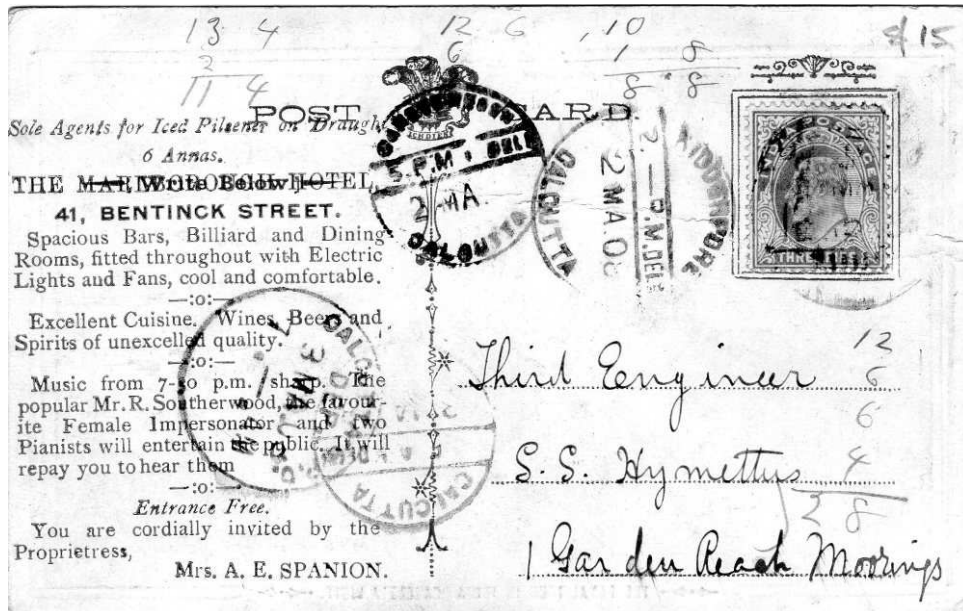 13 4 12 6 ,10
2 6 1 8
11 4 8 8
$15
POST CARD.
Sole Agents for Iced Pilsener on Draught
6 Annas.
Write Below
THE MARLBOROUGH HOTEL,
41, BENTINCK STREET.
Spacious Bars, Billiard and Dining
Rooms, fitted throughout with Electric
Lights and Fans, cool and comfortable.
—:o:—
Excellent Cuisine. Wines, Beers and
Spirits of unexcelled quality.
—:o:—
Music from 7-30 p.m. sharp. The
popular Mr. R. Southerwood, the favour-
ite Female Impersonator and two
Pianists will entertain the public. It will
repay you to hear them
—:o:—
Entrance Free.
You are cordially invited by the
Proprietress,
Mrs. A. E. SPANION.
P.M. DELY
2 MA
CALCUTTA
KIDDERPORE
2 - P.M. DELY
2 MA 08
CALCUTTA
CALCUTTA
THREE
Third Engineer
S.S. Hymettus
1 Garden Reach Moorings
12
6
6
4
2 8